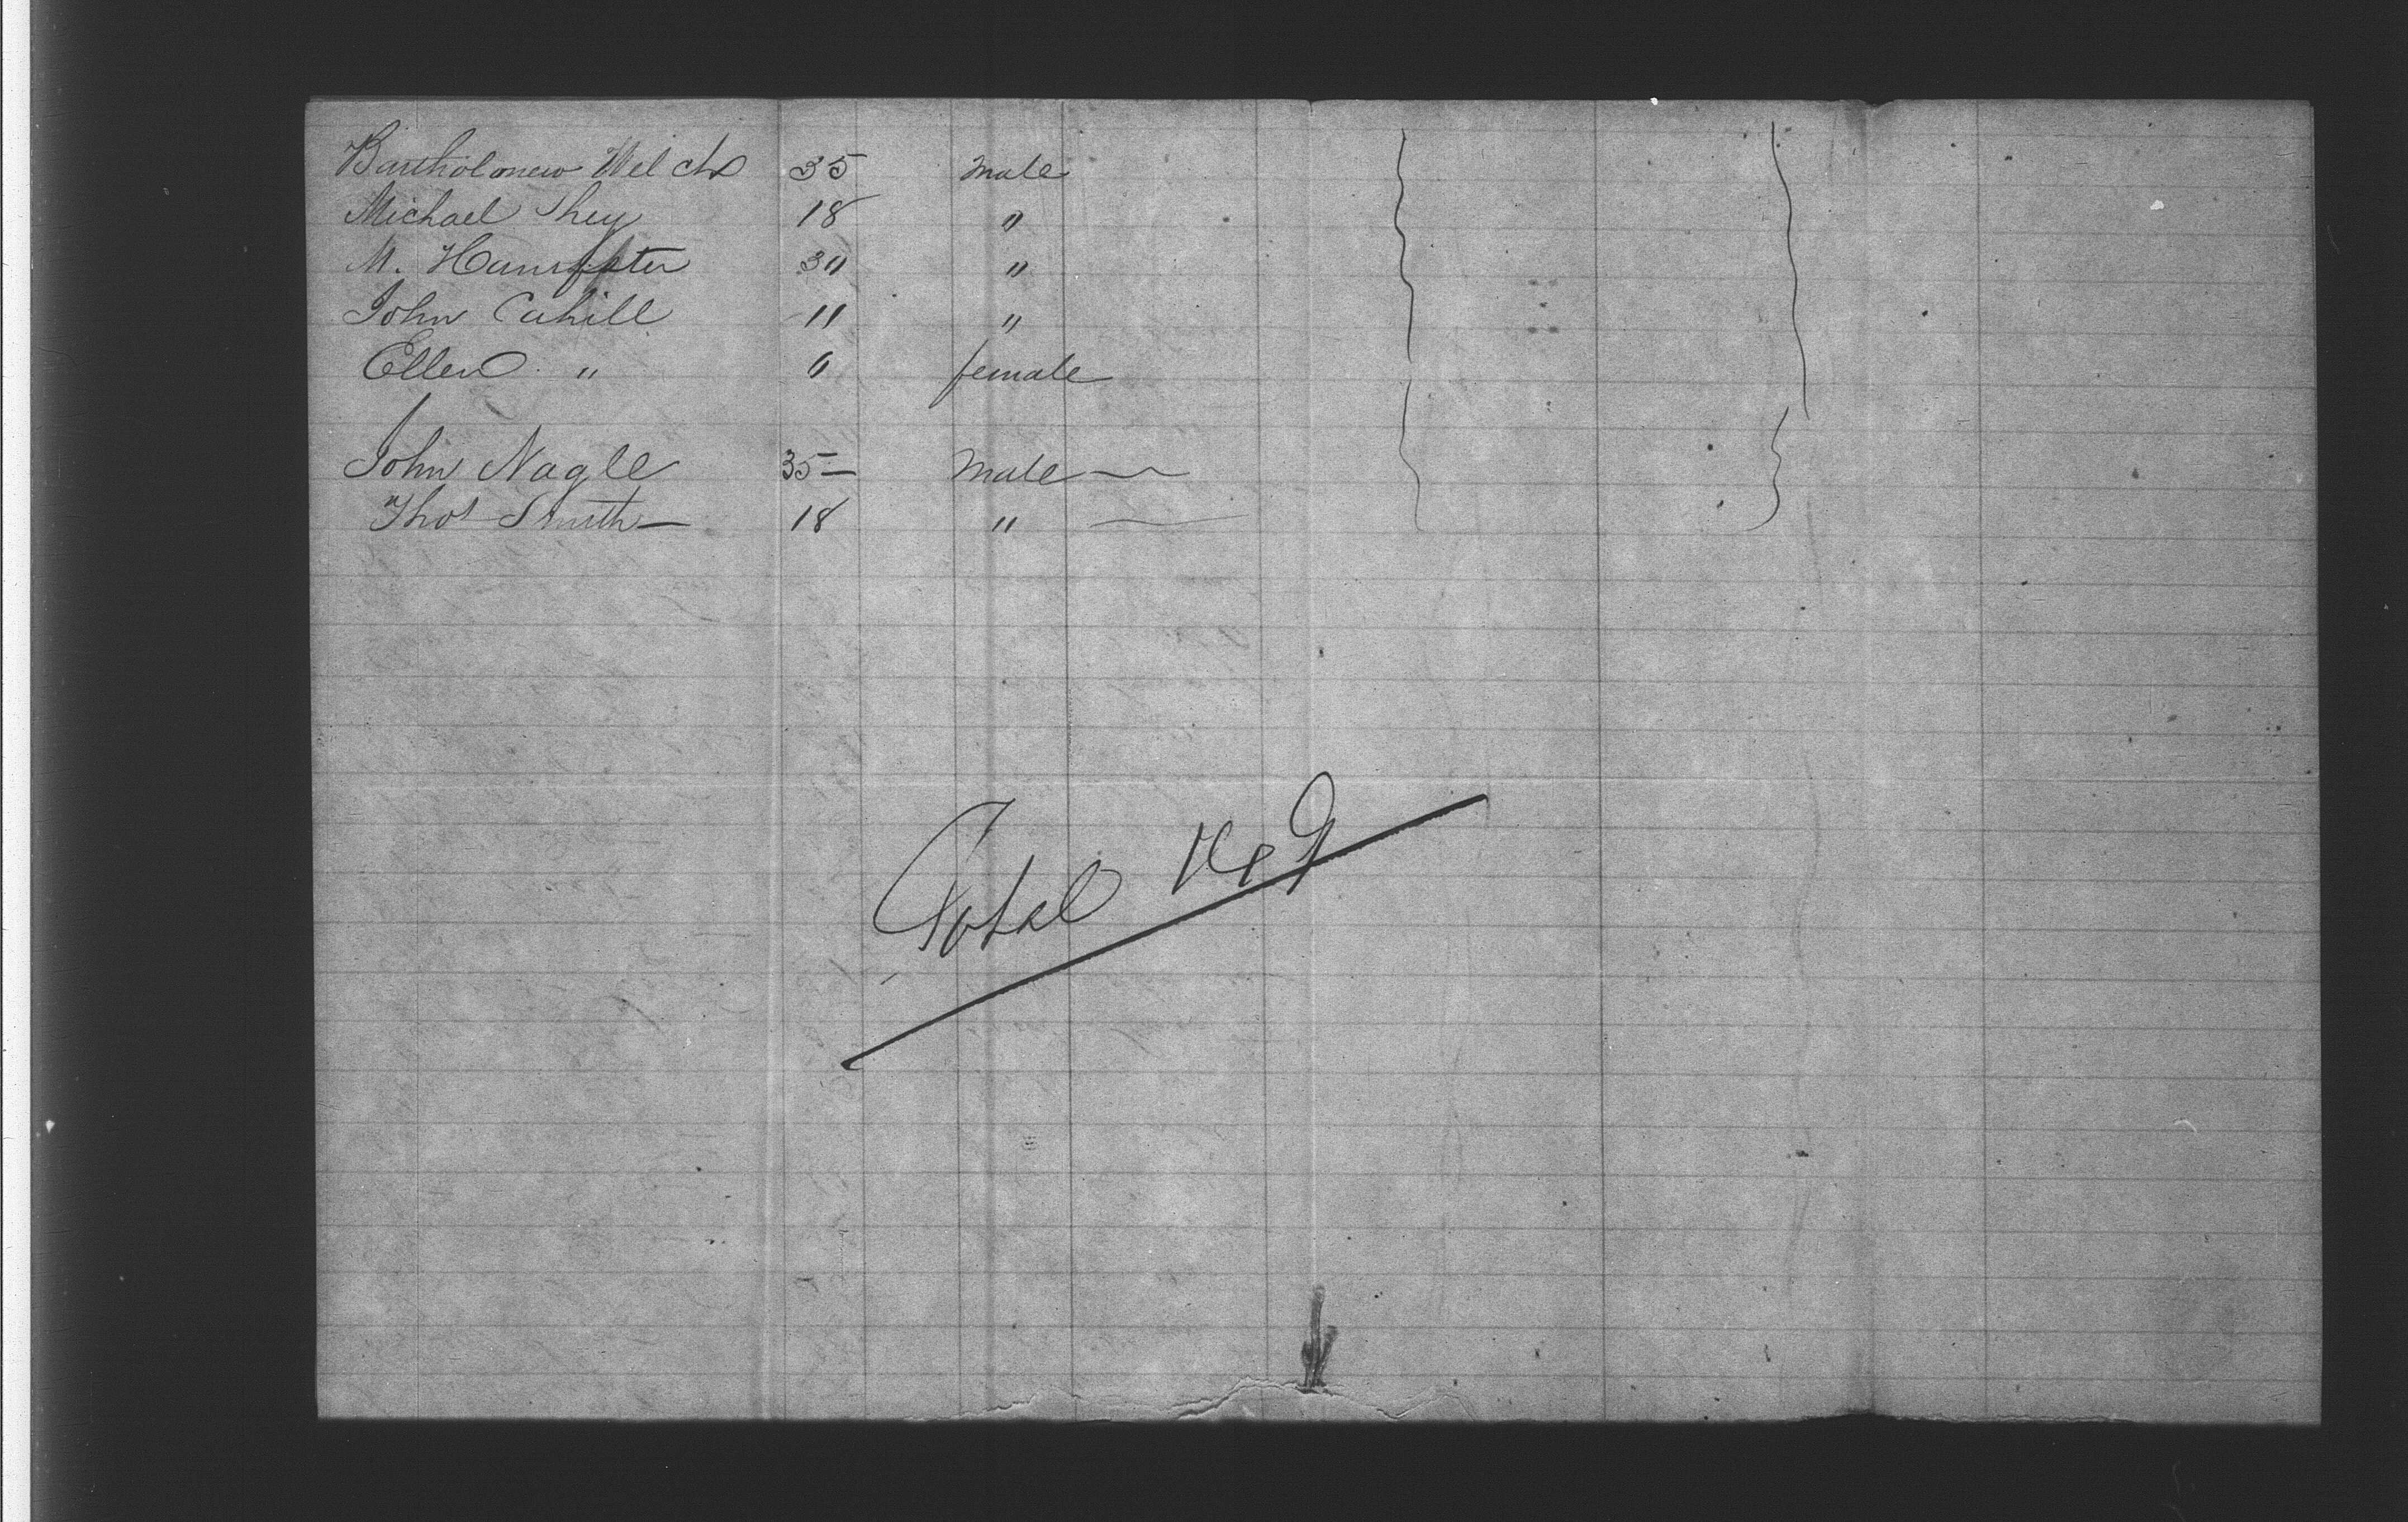 Bartholomew Welch 35 male
Michael Shey 18 "
M. 30 "
John Cahill 11 "
Ellen " female
John Nagle 35 — male
Thos Smith — 18 "
Total